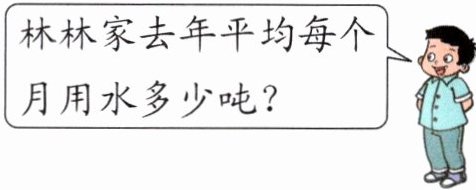 林林家去年平均每个
月用水多少吨？